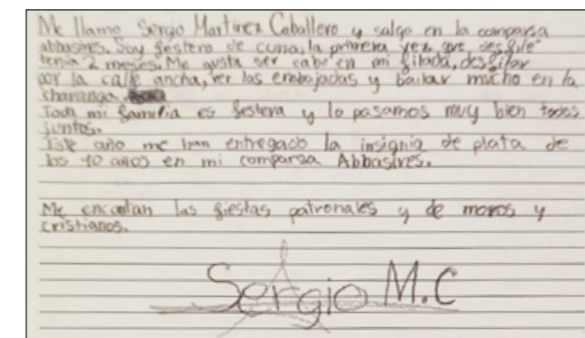 Me llamo Sergio Martínez Caballero y salgo en la comparsa
abbasires. Soy festero de cuna, la primera vez que desfilé
tenia 2 meses. Me gusta ser cabo en mi filada, desfilar
por la calle ancha, ver las embajadas y bailar mucho en la
charanga.
Toda mi familia es festera y lo pasamos muy bien todos
juntos.
Este año me han entregado la insignia de plata de
los 10 años en mi comparsa Abbasires.
Me encantan las fiestas patronales y de moros y
cristianos.
Sergio M.C